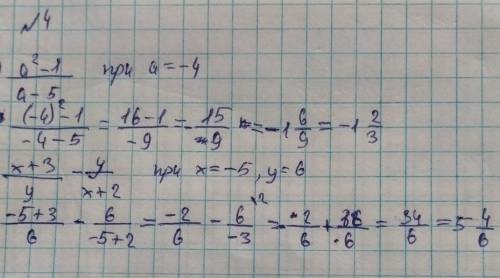 №4
) (a² - 1)/(a - 5) при a = -4
((-4)² - 1)/(-4 - 5) = (16 - 1)/(-9) = -15/9 = -1 6/9 = -1 2/3
(x + 3)/y - y/(x + 2) при x = -5, y = 6
(-5 + 3)/6 - 6/(-5 + 2) = (-2)/6 - 6/(-3) ^(\2) = (-2)/6 + 36/6 = 34/6 = 5 4/6